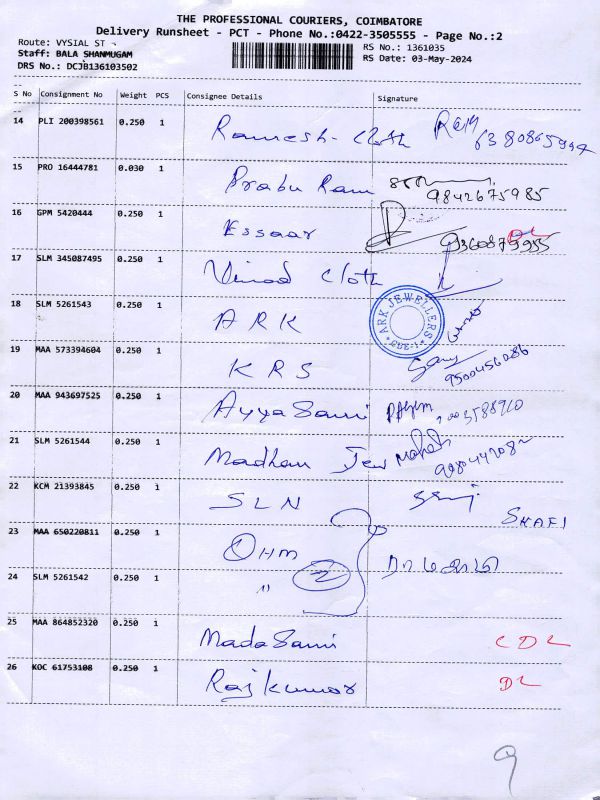 THE PROFESSIONAL COURIERS, COIMBATORE
Delivery Runsheet - PCT - Phone No.:0422-3505555 - Page No.:2
Route: VYSIAL ST
Staff: BALA SHANMUGAM
DRS No.: DCJB136103502
RS No.: 1361035
RS Date: 03-May-2024
S No Consignment No Weight PCS Consignee Details Signature
14 PLI 200398561 0.250 1 Ramesh- Cloth
15 PRO 16444781 0.030 1 Prabu Ram 9842675985
16 GPM 5420444 0.250 1 Essaar
17 SLM 345087495 0.250 1 Vinod Cloth
18 SLM 5261543 0.250 1 ARK ARK JEWELLERS
19 MAA 573394604 0.250 1 KRS 9500456086
20 MAA 943697525 0.250 1 Ayya Sami
21 SLM 5261544 0.250 1 Madhan Jew Mahesh
22 KCM 21393845 0.250 1 SLN SHAFI
23 MAA 650220811 0.250 1 OHM
24 SLM 5261542 0.250 1 " 2
25 MAA 864852320 0.250 1 Mada Sami CDL
26 KOC 61753108 0.250 1 Raj kumar DL
9